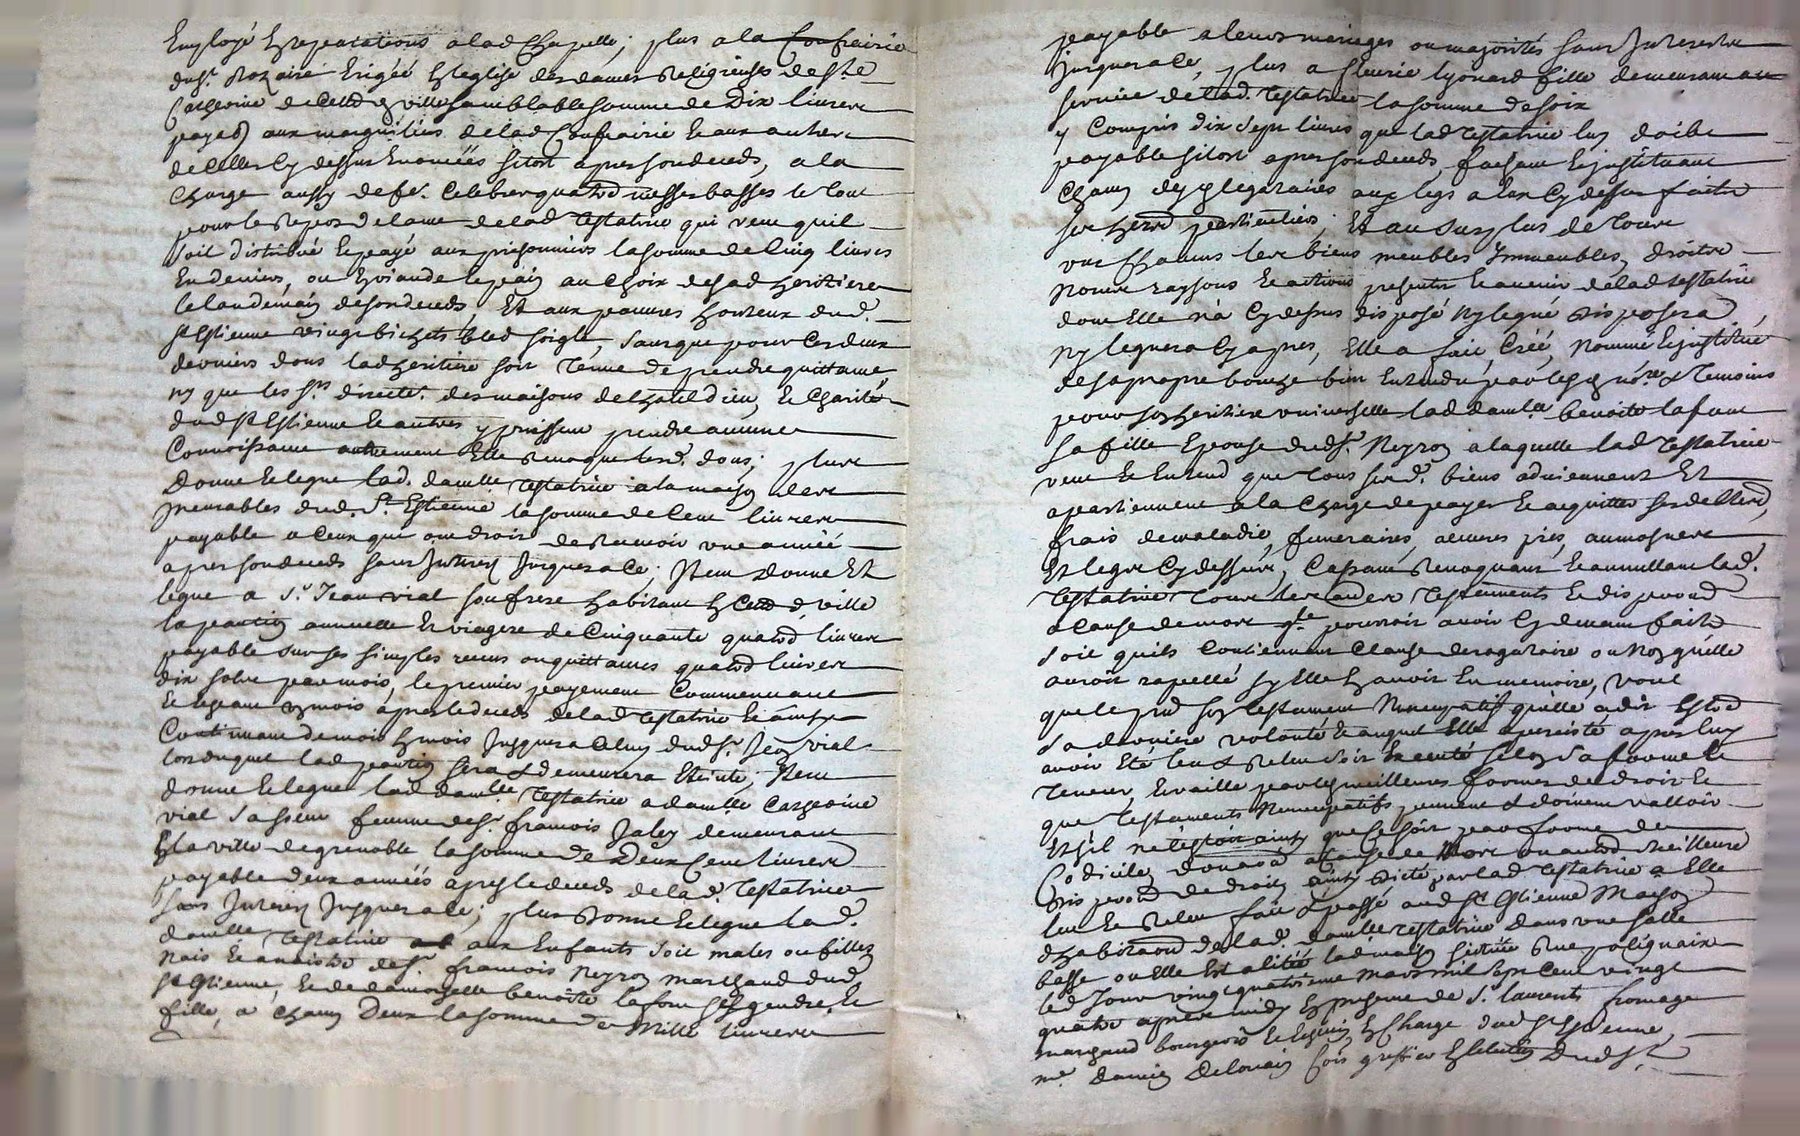 Employé En reparations a lad Chapelle; plus a la Confrairie
du St. Rozaire Erigéé En leglise des dames Religieuses de Ste
Catherine de Cettd. ville semblable somme de Dix livres
payab aux marguiliers de lad Confrairie Et aux autres
de Celles Cy dessus Enoncéés sitost apres son deceds, a la
Charge aussy de fe. Celebrer quatre messes basses le tout
pour le Repos de lame de lad Testatrice qui veut quil
soit distribué Et payé aux prisonniers la somme de Cinq livres
En deniers, ou En viande Et pain au Choix de sad heritiere
le landemain de son deceds, Et aux pauvres honteux dud.
St Estienne vingt bichets bled soigle, sans que pour Ces deux
derniers dons lad heritiere soit Tenue de prendre quittance
ny que les Srs. directrs. des maisons de Lhosteldieu, Et Charité
dud St Estienne Et autres y puissent prendre aucune
Connoissance autrement Elle Revoque lesd. dons; plus
Donne Et legue lad. damlle Testatrice a la maison des
Incurables dud. St. Estienne la somme de Cent livres
payable a Ceux qui ont droit de Recevoir une année
apres son deceds sans Interest Jusques a Ce; Item Donne Et
legue a Sr. Jean vial son frere habitant En Cettd. ville
la pention annuelle Et viagere de Cinquante quatre livres
payable sur ses simples receus ou quittances quatre livres
dix sols par mois, le premier payement Commencant
Et Echeant un mois apres le deceds de lad Testatrice Et ainsy
Continuant de mois En mois Jusques a Celuy dud Sr. Jean vial
lors duquel lad pention sera & demeurera Eteinte; Item
donne Et legue lad damlle Testatrice a damlle Catherine
vial sa soeur femme de Sr. francois Jaley demeurant
En la ville de grenoble la somme de Deux Cent livres
payable deux annéés apres le deceds de lad. Testatrice
sans Interest Jusques a Ce; plus Donne Et legue lad.
damlle Testatrice aux Enfants soit males ou filles
nais Et a naistre de Sr. francois Neyron marchand dud
St Etienne, Et de demoiselle benoite lafont ses gendre Et
fille, a Chacun Deux la somme de Mille livres
payable a leurs mariages ou majorités sans Interests
Jusques a Ce, plus a fleurie lyonard fille demeurant au
service de lad. Testatrice la somme de soix
y Compris dix Sept livres que lad Testatrice luy doibt
payable sitost apres son deceds, faisant Et Instituant
Chacun desd legataires aux legs a Eux Cy dessus faits
ses hered particuliers; Et au Surplus de Tous
uns Chacuns les biens meubles Immeubles, droits
Noms raysons Et actions presents Et avenir de lad testatrice
dont Elle n'a Cy dessus disposé Ny legué disposera
ny leguera Cy apres, Elle a fait, Créé, Nommé Et Institué
de sa propre bouche bien Entendu par lesd nore & Temoins
pour son heritiere universelle lad damlle benoite lafont
sa fille Epouse dud Sr. Neyron a laquelle lad Testatrice
veut Et Entend que Tous ses d. biens adviennent Et
apartiennent a la Charge de payer Et acquitter ses dettes,
frais de maladie, funeraires, oeuvres pies, aumosnes
Et legs Cy dessus, Cassant Revoquant Et annullant lad.
Testatrice Tous les autres Testaments Et dispoons
a Cause de mort qle pourroit avoir Cy devant faits
soit quils Contiennent Clause derogatoire ou Non quelle
auroit rapellé sy Elle En avoit En memoire, veut
que le pnd soy Testament Nuncupatif quelle a dit Estre
sa derniere volonté Et auquel Elle a persisté apres luy
avoir Eté leu & Releu soit Executé selon sa forme Et
Teneur, Et vaille par les meilleures formes de droit Et
que Testaments Nuncupatifs peuvent & doivent valloir
Et s'il n'estoit ainsy que Ce soit par forme de
Codicile, donaon a Cause de Mort ou autre Meilleure
dispoon de droit, ainsy dicté par lad Testatrice a Elle
leu Et Releu fait & passé aud St Estienne Maison
dhabitaon de lad. damlle testatrice dans une salle
basse ou Elle Est alitéé lad maison scituéé Rue polignais
led Jour vingt quatrieme Mars mil Sept Cent vingt
quatre apres midy En presence de S. laurent fromage
marchand bourgeois Et Echevin En Charge dud St Estienne,
me. damien Delorain Cois greffier En lelection Dud St.